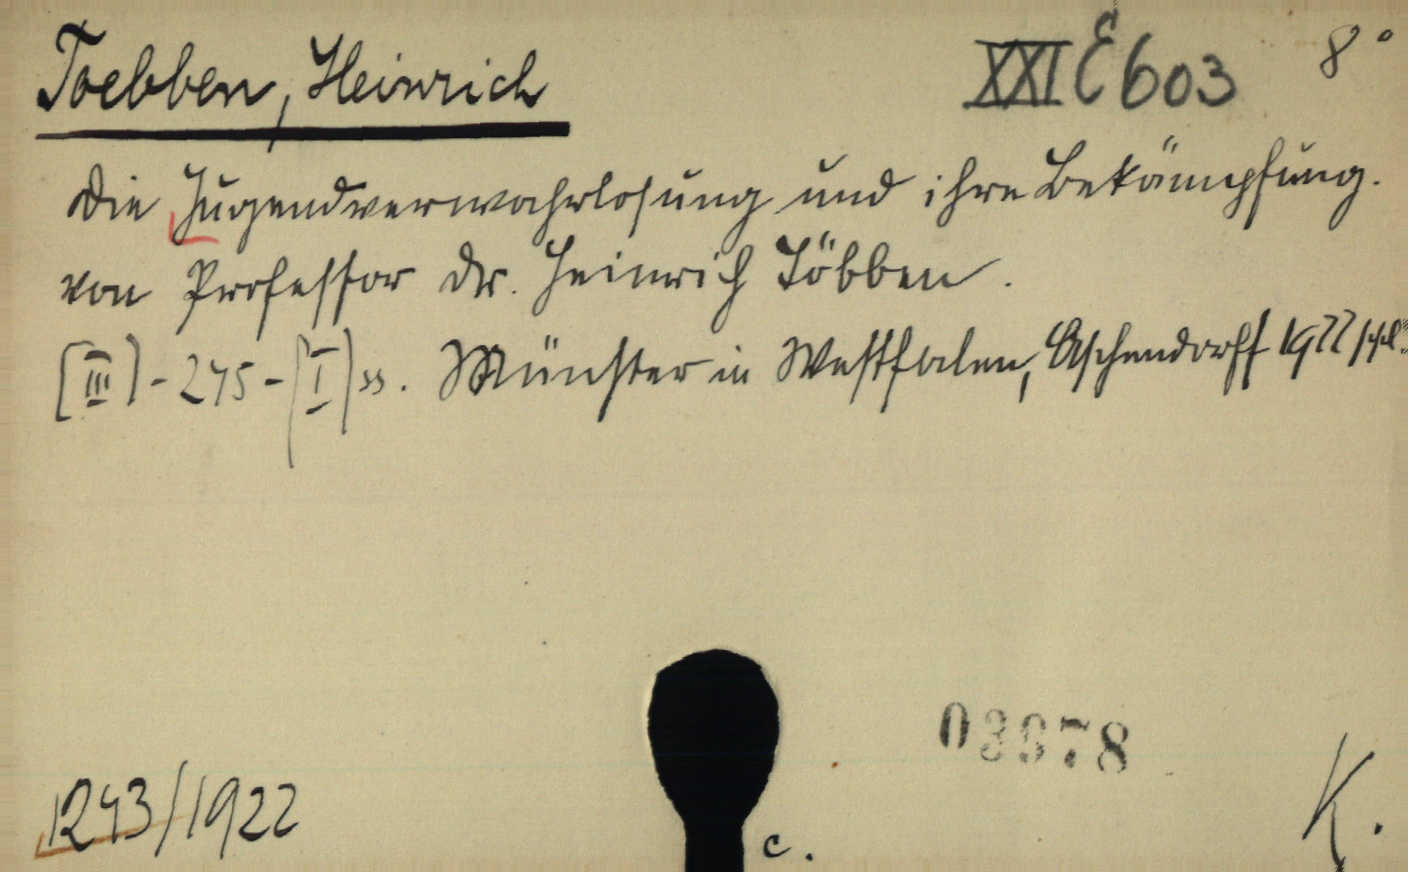 Toebben, Heinrich
XXI E 603 8°
Die Jugendverwahrlosung und ihre Bekämpfung.
von Professor Dr. Heinrich Többen.
[III] - 245 - [I] ss. Münster in Westfalen, Aschendorff 1922
1243/1922
c.
K.